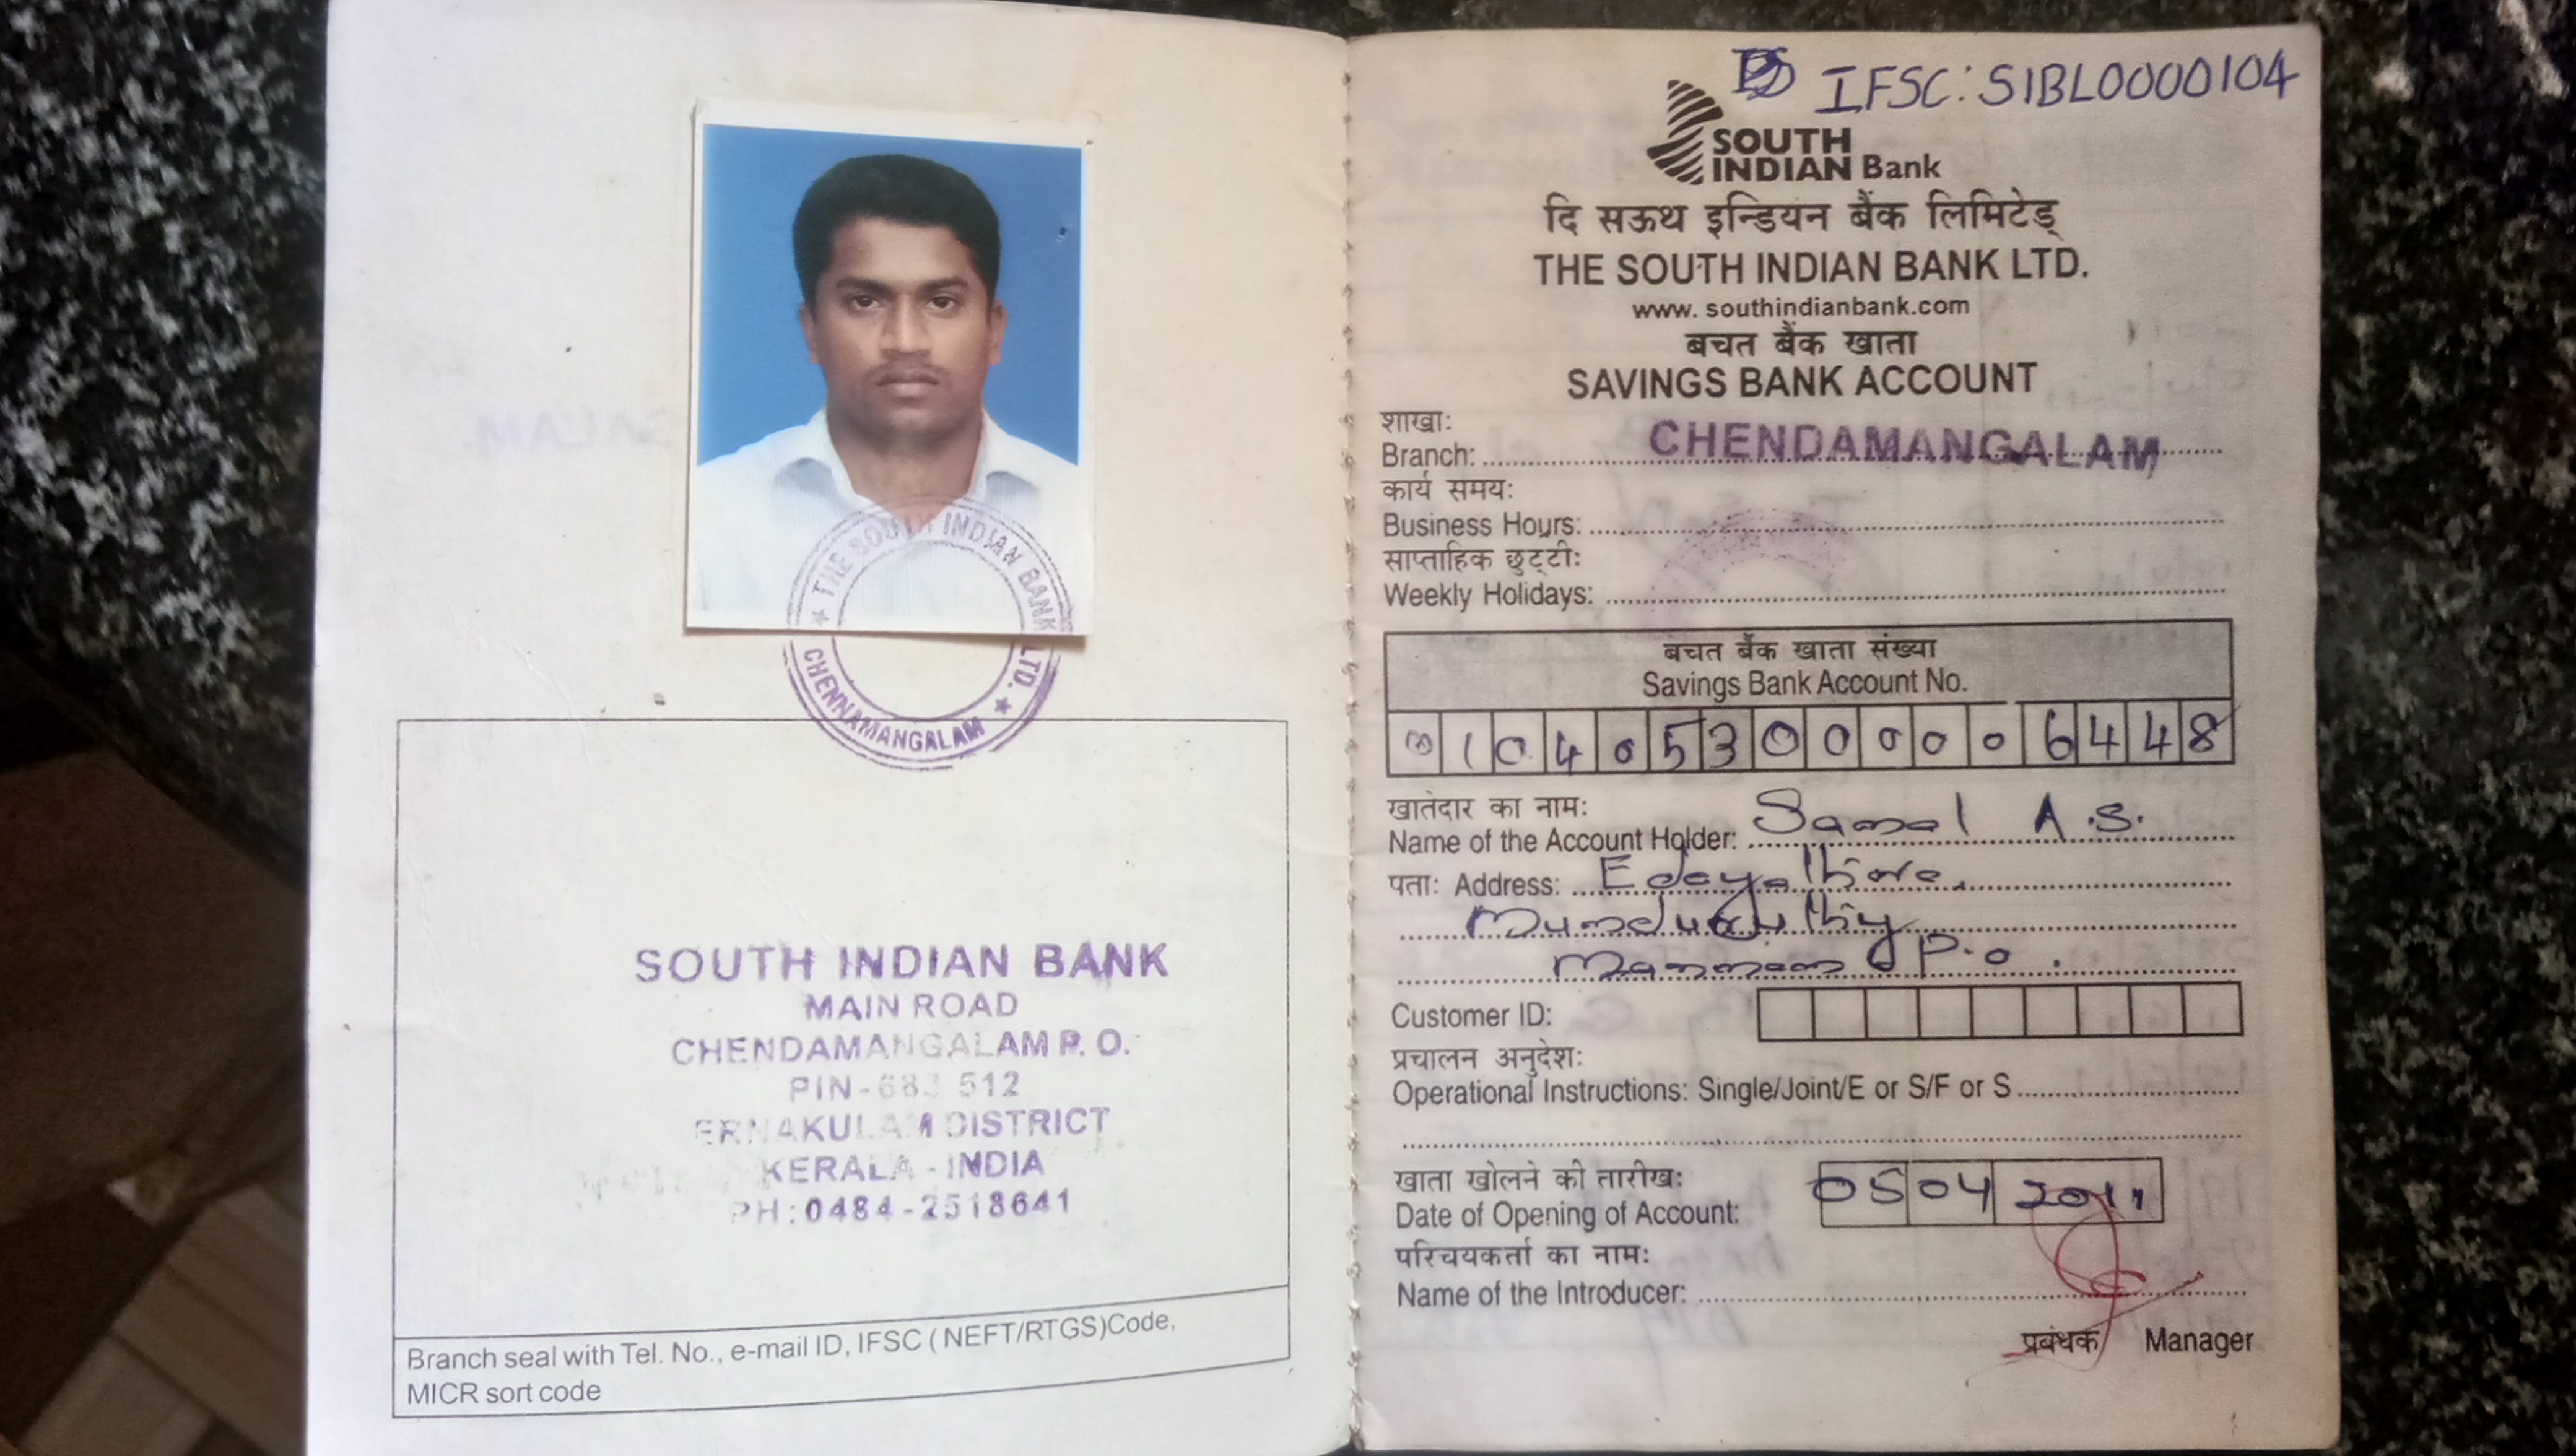 THE SOUTH INDIAN BANK LTD.
★ CHENNAMANGALAM ★
SOUTH INDIAN BANK
MAIN ROAD
CHENDAMANGALAM P. O.
PIN-683 512
ERNAKULAM DISTRICT
KERALA - INDIA
PH:0484-2518641
Branch seal with Tel. No., e-mail ID, IFSC (NEFT/RTGS)Code,
MICR sort code
IFSC: SIBL0000104
SOUTH
INDIAN Bank
दि सऊथ इन्डियन बैंक लिमिटेड्
THE SOUTH INDIAN BANK LTD.
www. southindianbank.com
बचत बैंक खाता
SAVINGS BANK ACCOUNT
शाखाः
Branch: CHENDAMANGALAM
कार्य समयः
Business Hours:
साप्ताहिक छुट्टीः
Weekly Holidays:
बचत बैंक खाता संख्या
Savings Bank Account No.
0104053000006448
खातेदार का नामः
Name of the Account Holder: Samal A.S.
पताः Address:
Mannam P.O.
Customer ID:
प्रचालन अनुदेशः
Operational Instructions: Single/Joint/E or S/F or S
खाता खोलने की तारीखः
Date of Opening of Account: 05 04 2011
परिचयकर्ता का नामः
Name of the Introducer:
प्रबंधक Manager